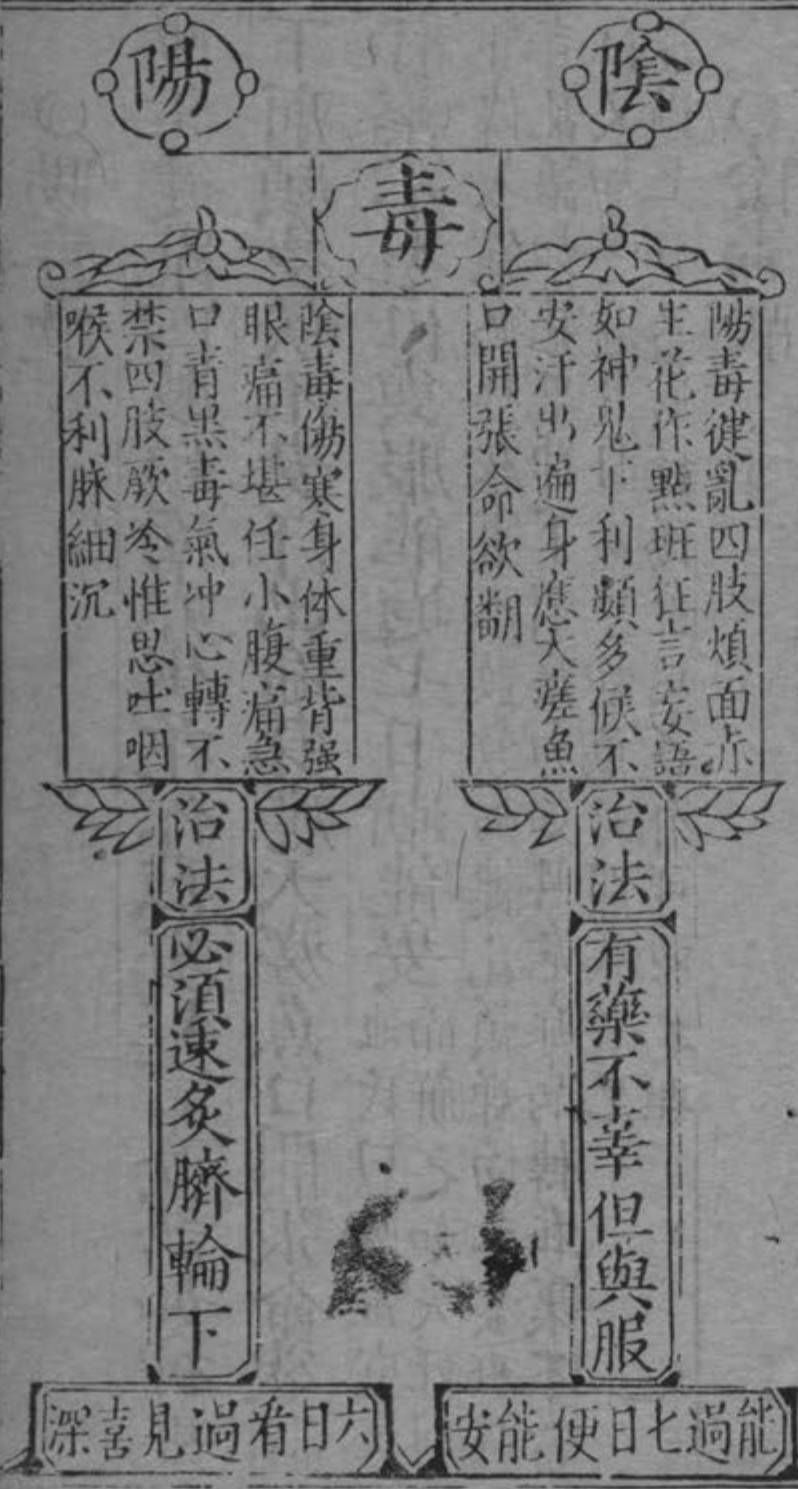 陰
陽
毒
陽毒健亂四肢煩面赤
生花作點班狂言妄語
如神鬼下利頻多候不
安汗出遍身應大瘥魚
口開張命欲翻
治法
有藥不辜但與服
能過七日便能安
陰毒傷寒身体重背强
眼痛不堪任小腹痛急
口青黑毒氣冲心轉不
禁四肢厥冷惟思吐咽
喉不利脉細沉
治法
必須速灸臍輪下
六日看過見喜深